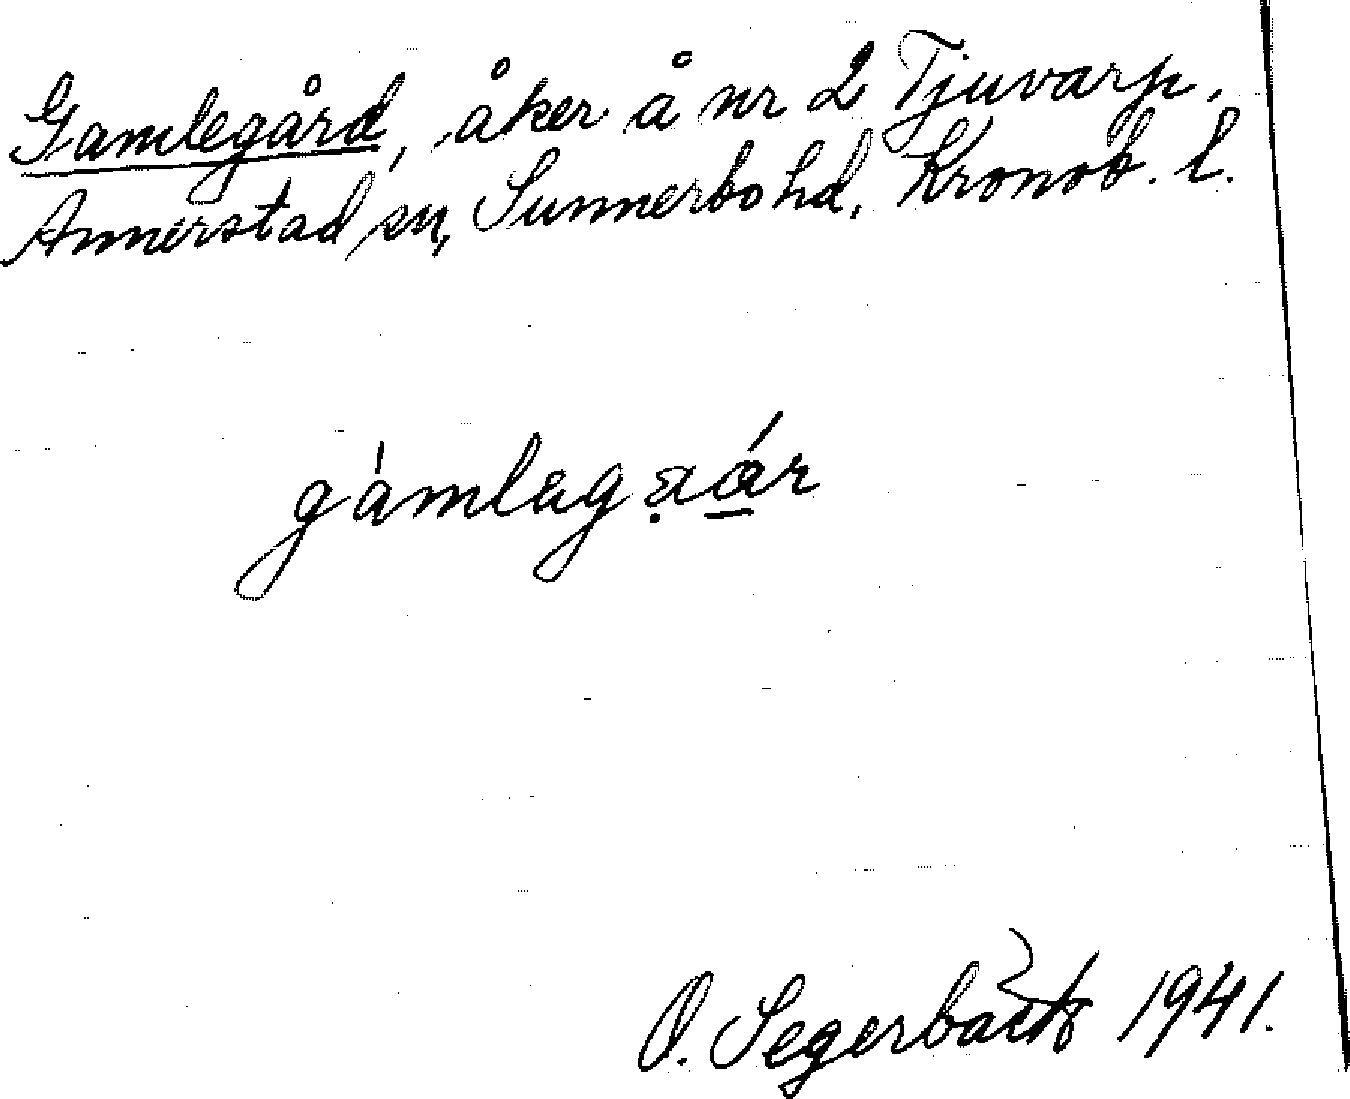 Gamlegård, åker å nr 2 Tjuvarp,
Annerstad sn, Sunnerbo hd, Kronob. l.
O. Segerbäck 1941.